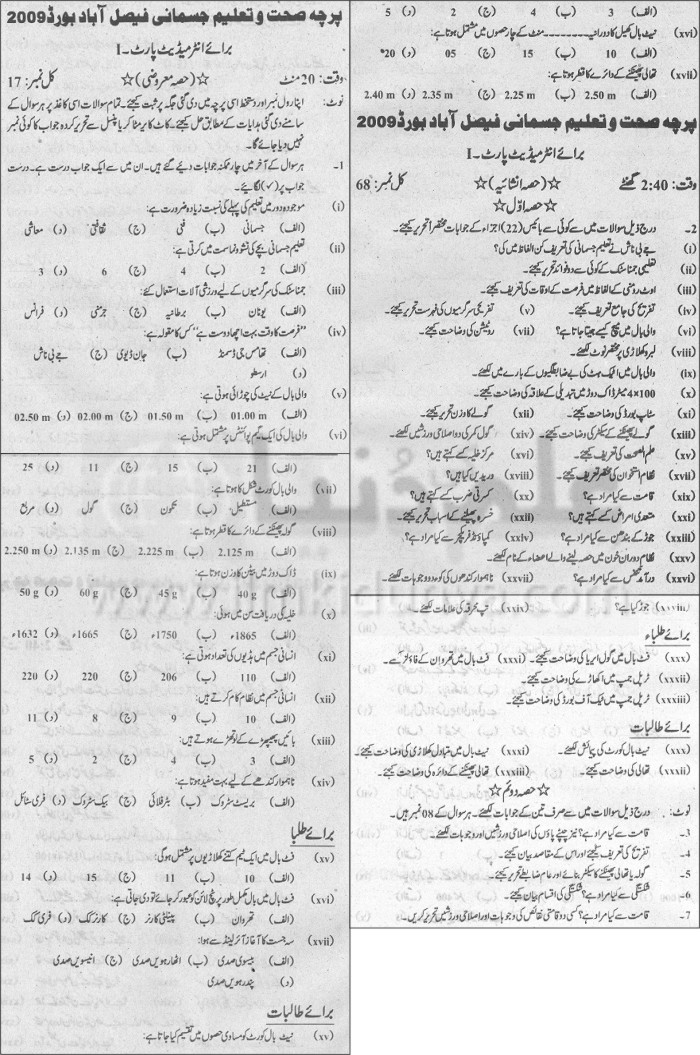 پرچہ صحت و تعلیم جسمانی فیصل آباد بورڈ 2009
برائے انٹرمیڈیٹ پارٹ۔ I
وقت: 20 منٹ ☆(حصہ معروضی)☆ کل نمبر: 17
نوٹ: اپنا رول نمبر اور دستخط اسی پرچہ میں دی گئی جگہ پر ثبت کیجئے۔ تمام سوالات اسی کاغذ پر ہر سوال کے
سامنے دی گئی ہدایات کے مطابق حل کیجئے۔ کاٹ کر یا مٹا کر یا پنسل سے تحریر کردہ جواب کا کوئی نمبر
نہیں دیا جائے گا۔
1- ہر سوال کے آخر میں چار ممکنہ جوابات دیے گئے ہیں۔ ان میں سے ایک جواب درست ہے۔ درست
جواب پر (✓) لگائیے۔
(i) موجودہ دور میں تعلیم کی پہلے کی نسبت زیادہ ضرورت ہے:
(الف) جسمانی (ب) فنی (ج) ثقافتی (د) معاشی
(ii) تعلیم جسمانی بچے کی نشوونما سمت میں کرتی ہے:
(الف) 2 (ب) 4 (ج) 6 (د) 3
(iii) جمناسٹک کی سرگرمیوں کے لیے ورزشی آلات استعمال کئے:
(الف) یونان (ب) برطانیہ (ج) جرمنی (د) فرانس
(iv) "فرصت کا وقت بہت اچھا دوست ہے" کس کا مقولہ ہے:
(الف) تھامس جی ڈسمنڈ (ب) جان ڈیوی (ج) جے بی ناش
(د) ارسطو
(v) والی بال کے نیٹ کی چوڑائی ہوتی ہے:
(الف) 01.00 m (ب) 01.50 m (ج) 02.00 m (د) 02.50 m
(vi) والی بال کی ایک گیم پوائنٹس پر مشتمل ہوتی ہے:
(الف) 21 (ب) 15 (ج) 11 (د) 25
(vii) والی بال کورٹ شکل کا ہوتا ہے:
(الف) مستطیل (ب) تکون (ج) گول (د) مربع
(viii) گولہ پھینکنے کے دائرے کا قطر ہوتا ہے:
(الف) 2.125 m (ب) 2.225 m (ج) 2.135 m (د) 2.250 m
(ix) ڈاک دوڑ میں بیٹن کا وزن ہوتا ہے:
(الف) 40 g (ب) 45 g (ج) 60 g (د) 50 g
(x) خلیہ کی دریافت سن میں ہوئی:
(الف) 1865ء (ب) 1750ء (ج) 1665ء (د) 1632ء
(xi) انسانی جسم میں ہڈیوں کی تعداد ہوتی ہے:
(الف) 110 (ب) 206 (ج) 220 (د) 220
(xii) انسانی جسم میں نظام کام کرتے ہیں:
(الف) 10 (ب) 9 (ج) 8 (د) 11
(xiii) بائیں پھیپھڑے کے لوتھڑے ہوتے ہیں:
(الف) 3 (ب) 4 (ج) 2 (د) 5
(xiv) ناہموار کندھے کے لیے بہت مفید ہوتا ہے:
(الف) بریسٹ سٹروک (ب) بٹرفلائی (ج) بیک سٹروک (د) فری سٹائل
برائے طلبا
(xv) فٹ بال میں ایک ٹیم کتنے کھلاڑیوں پر مشتمل ہوگی:
(الف) 10 (ب) 11 (ج) 15 (د) 14
(xvi) فٹ بال میں بال مکمل طور پر ٹچ لائن کو عبور کر جائے تو دی جاتی ہے:
(الف) تھروان (ب) پینلٹی کارنر (ج) کارنر کک (د) فری کک
(xvii) سہ جست کا آغاز آئرلینڈ سے ہوا:
(الف) بیسوی صدی (ب) اٹھارھویں صدی (ج) انیسویں صدی
(د) پندرھویں صدی
برائے طالبات
(xv) نیٹ بال کورٹ کو مساوی حصوں میں تقسیم کیا جاتا ہے:
(الف) 3 (ب) 4 (ج) 2 (د) 5
(xvi) نیٹ بال کھیل کا دورانیہ ........ منٹ کے چار حصوں میں مشتمل ہوتا ہے:
(الف) 10 (ب) 15 (ج) 05 (د) 20*
(xvii) تھالی پھینکنے کے دائرے کا قطر ہوتا ہے:
(الف) 2.50 m (ب) 2.25 m (ج) 2.35 m (د) 2.40 m
پرچہ صحت و تعلیم جسمانی فیصل آباد بورڈ 2009
برائے انٹرمیڈیٹ پارٹ۔ I
وقت: 2:40 گھنٹے ☆(حصہ انشائیہ)☆ کل نمبر: 68
☆حصہ اوّل☆
2- درج ذیل سوالات میں سے کوئی سے بائیس (22) اجزاء کے جوابات مختصراً تحریر کیجئے۔
(i) جے بی ناش نے تعلیم جسمانی کی تعریف کن الفاظ میں کی؟
(ii) تعلیمی جمناسٹک کے کوئی سے دو فوائد تحریر کیجئے۔
(iii) اوٹ روٹسی کے الفاظ میں فرصت کے اوقات کی تعریف کیجئے۔
(iv) تفریح کی جامع تعریف کیجئے۔ (v) تفریحی سرگرمیوں کی فہرست تحریر کیجئے۔
(vi) والی بال میں میچ کیسے جیتا جاتا ہے؟ (vii) روٹیشن کی وضاحت کیجئے۔
(viii) لبرو کھلاڑی پر مختصر نوٹ لکھئے۔
(ix) والی بال میں اٹیک ہٹ کی بے ضابطگیوں کے بارے میں لکھئے۔
(x) 4×100 میٹر ڈاک دوڑ میں تبدیلی کے علاقہ کی وضاحت کیجئے۔
(xi) سٹاپ بورڈ کی وضاحت کیجئے۔ (xii) گولے کا وزن تحریر کیجئے۔
(xiii) گولے پھینکنے کے سیکٹر کی وضاحت کیجئے۔ (xiv) گول کمر کی دو اصلاحی ورزشیں لکھئے۔
(xv) علم الصحت کی تعریف کیجئے۔ (xvi) مرکز خلیہ کسے کہتے ہیں؟
(xvii) نظام استخوان کی مختصر تعریف کیجئے۔ (xviii) وریدیں کیا ہیں؟
(xix) قامت سے کیا مراد ہے؟ (xx) کسرتی ضرب کسے کہتے ہیں؟
(xxi) متعدی امراض کسے کہتے ہیں؟ (xxii) خسرہ پھیلنے کے اسباب تحریر کیجئے۔
(xxiii) جوڑ کے بندھن سے کیا مراد ہے؟ (xxiv) کمپاؤنڈ فریکچر سے کیا مراد ہے؟
(xxv) نظام دوران خون میں حصہ لینے والے اعضاء کے نام لکھئے۔
(xxvi) درآمد تنفس سے کیا مراد ہے؟ (xxvii) ناہموار کندھوں کی کوئی دو وجوہات لکھئے۔
(xxviii) جوڑ کیا ہے؟ (xxix) تپ محرقہ کی علامات لکھئے۔
برائے طلباء
(xxx) فٹ بال میں گول ایریا کی وضاحت کیجئے۔ (xxxi) فٹ بال میں تھرو ان کے فاؤلز لکھئے۔
(xxxii) ٹرپل جمپ میں اکھاڑے کی وضاحت کیجئے۔
(xxxiii) ٹرپل جمپ میں ٹیک آف بورڈ کی وضاحت کیجئے۔
برائے طالبات
(xxx) نیٹ بال کورٹ کی پیمائش لکھئے۔ (xxxi) نیٹ بال میں متبادل کھلاڑی کی وضاحت کیجئے۔
(xxxii) تھالی کی وضاحت کیجئے۔ (xxxiii) تھالی پھینکنے کے دائرہ کی وضاحت کیجئے۔
☆حصہ دوئم☆
نوٹ: درج ذیل سوالات میں سے صرف تین کے جوابات لکھئے۔ ہر سوال کے 08 نمبر ہیں۔
3- قامت سے کیا مراد ہے؟ نیز چپٹے پاؤں کی اصلاحی ورزشیں اور وجوہات لکھئے۔
4- تفریح کی تعریف لکھئے اور اس کے مقاصد بیان کیجئے۔
5- گولہ یا تھالی پھینکنے کا سیکٹر بنائیے اور عام ضابطے تحریر کیجئے۔
6- شکستگی سے کیا مراد ہے؟ شکستگی کی اقسام بیان کیجئے۔
7- قامت سے کیا مراد ہے؟ کسی دو قامتی نقائص کی وجوہات اور اصلاحی ورزشیں تحریر کریں۔